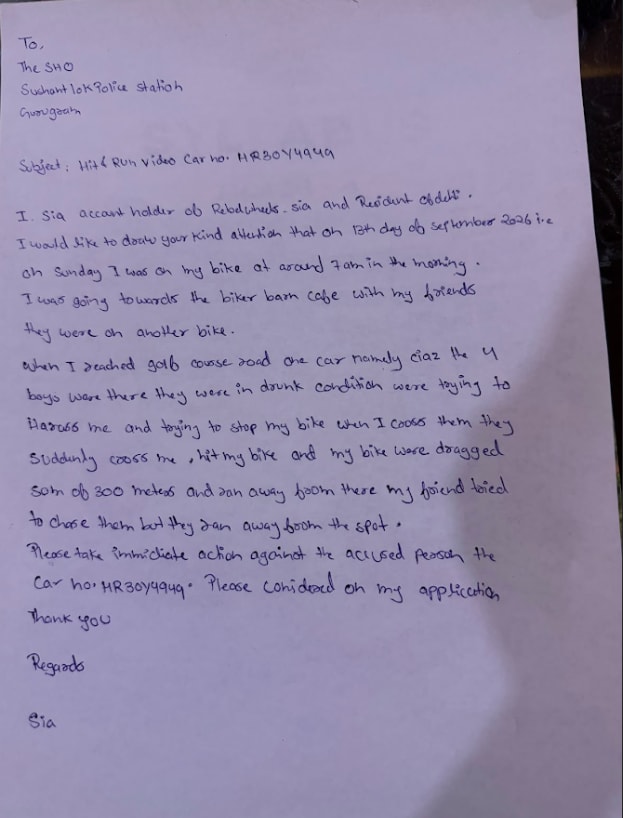 To,
The SHO
Sushant lok Police station
Gurugram
Subject: Hit & Run Video Car no. HR30Y4949
I. Sia account holder of Rebelwheels.sia and Resident of delhi.
I would like to draw your kind attention that on 13th day of september 2026 i.e
on sunday I was on my bike at around 7am in the morning.
I was going towards the biker barn cafe with my friends
they were on another bike.
when I reached golf course road one car namely ciaz the 4
boys were there they were in drunk condition were trying to
Harass me and trying to stop my bike when I cross them they
suddenly cross me, hit my bike and my bike were dragged
som of 300 meters and ran away from there my friend tried
to chase them but they ran away from the spot.
Please take immidiate action against the accused person the
Car no. HR30Y4949. Please conidered on my application
Thank you
Regards
Sia